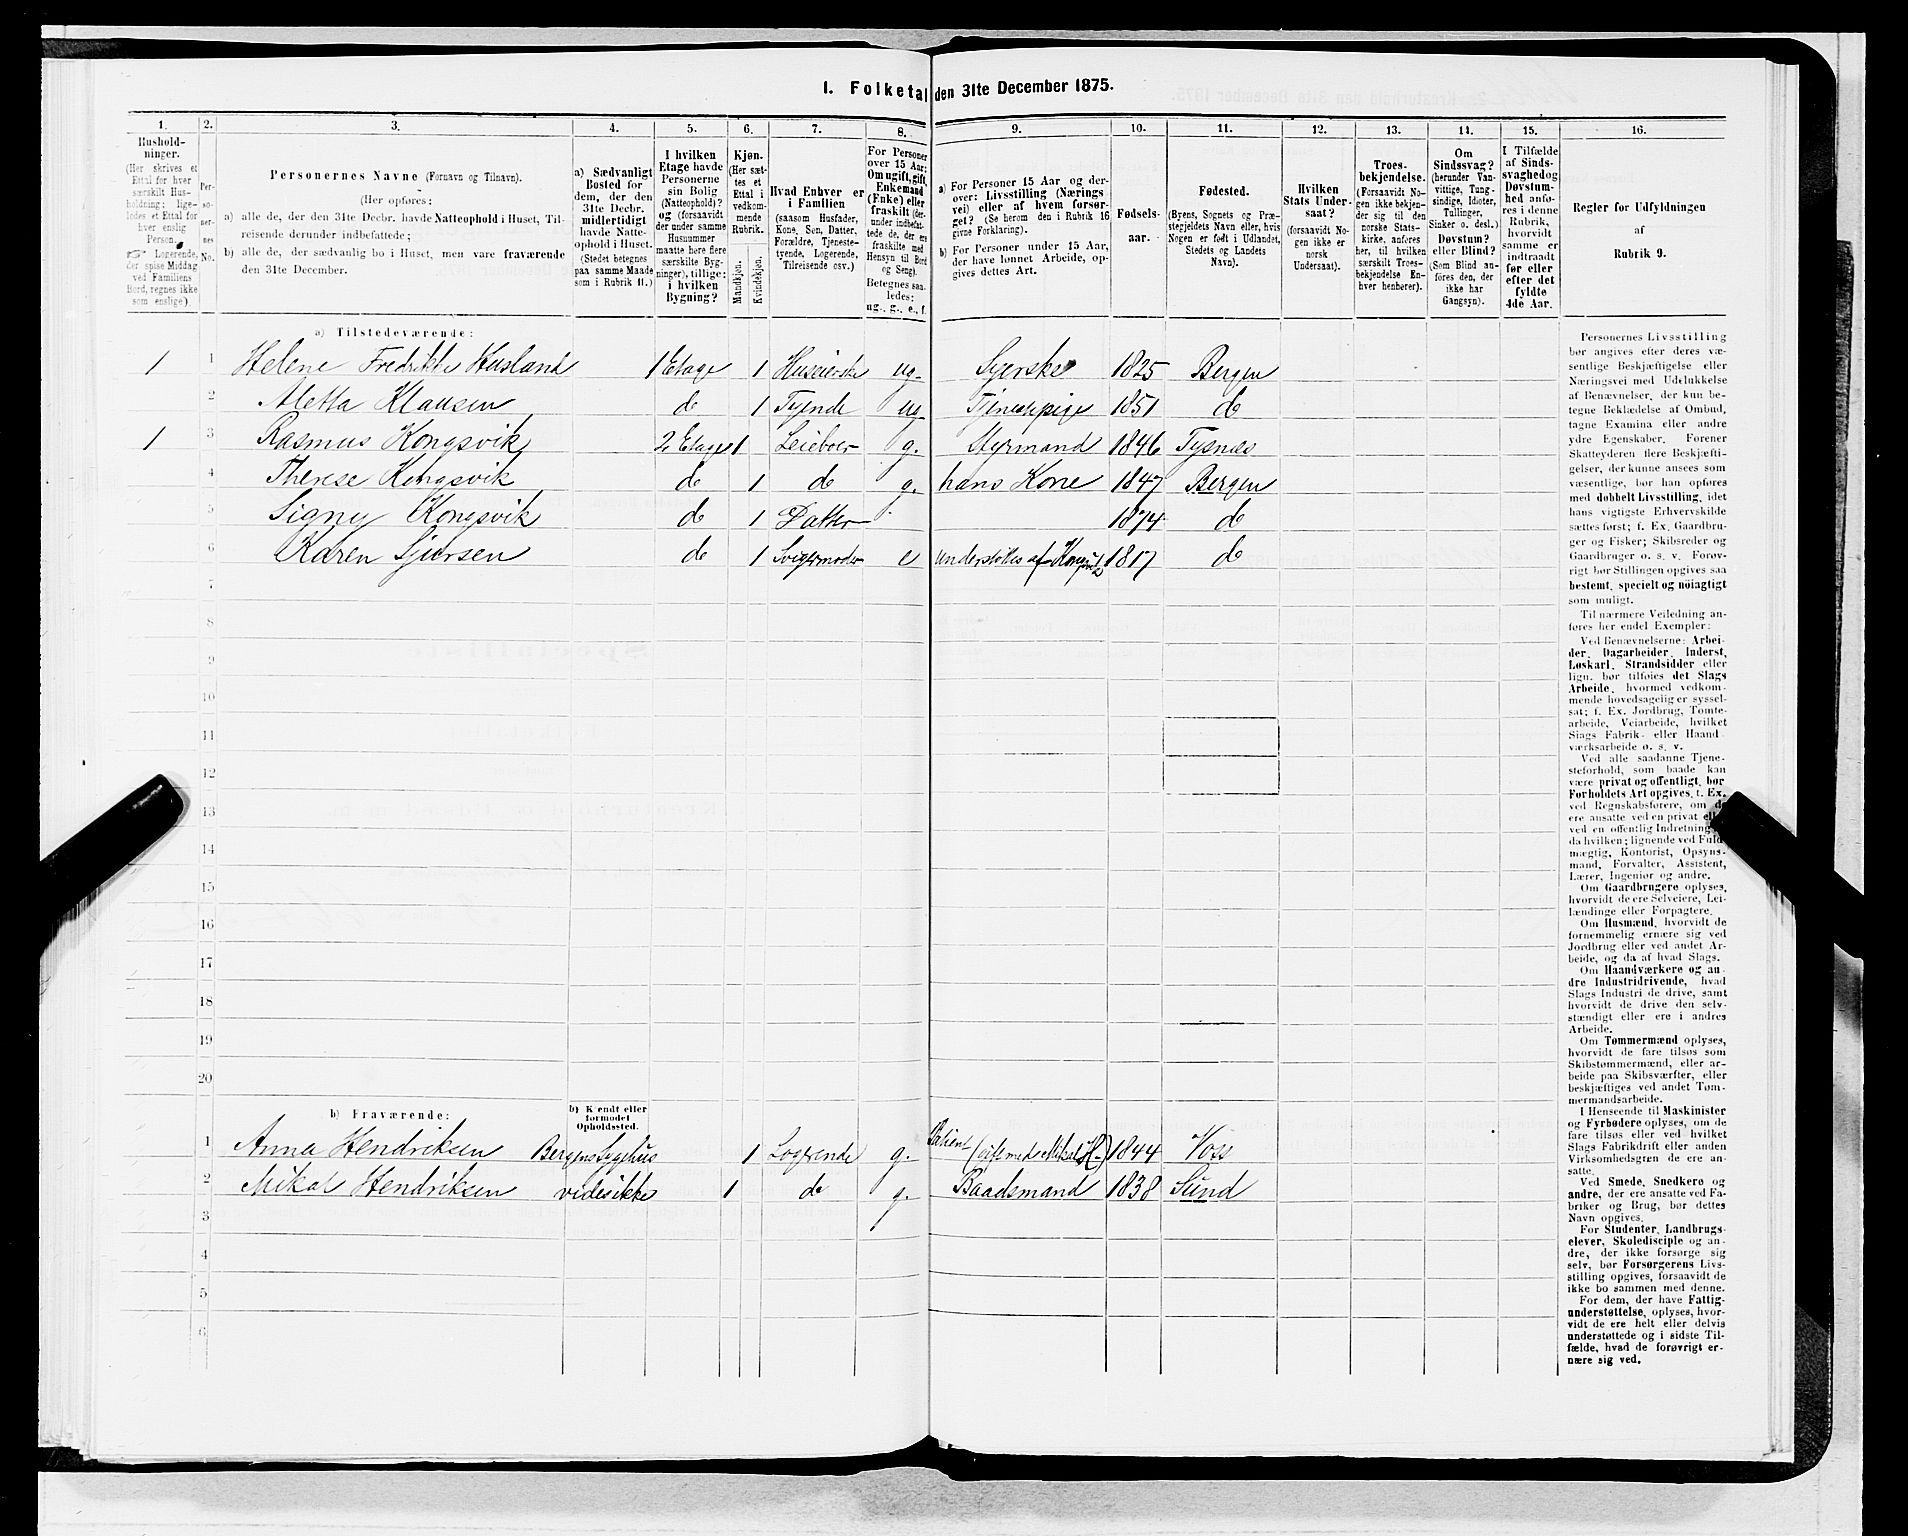 1. Folketal den 31te December 1875.
1. 2. 3. 4. 5. 6. 7. 8. 9. 10. 11. 12. 13. 14. 15. 16.
Hushold-
ninger.
(Her skrives et
Ettal for hver
særskilt Hus-
holdning; lige-
ledes et Ettal for
hver enslig
Person.
☞ Logerende,
der spise Middag
ved Familiens
Bord, regnes ikke
som enslige).
Per-
so-
ner-
nes
No.
Personernes Navne (Fornavn og Tilnavn).
(Her opføres:
a) alle de, der den 31te Decbr. havde Natteophold i Huset, Til-
reisende derunder indbefattede;
b) alle de, der sædvanlig bo i Huset, men vare fraværende
den 31te December.
a) Sædvanligt
Bosted for
dem, der den
31te Decbr.
midlertidigt
havde Natte-
ophold i Huset.
(Stedet betegnes
paa samme Maade
som i Rubrik 11.)
I hvilken
Etage havde
Personerne
sin Bolig
(Natteophold)?
og (forsaavidt
der under samme
Husnummer
maatte høre flere
særskilte Byg-
ninger), tillige:
i hvilken
Bygning?
Kjøn.
(Her sæt-
tes et
Ettal i
vedkom-
mende
Rubrik.
Mandkjøn.
Kvindekjøn.
Hvad Enhver er
i Familien
(saasom Husfader,
Kone, Søn, Datter,
Forældre, Tjeneste-
tyende, Logerende,
Tilreisende osv.)
For Personer
over 15 Aar:
Om ugift, gift,
Enkemand
(Enke) eller
fraskilt (der-
under indbefat-
tede de, der ere
fraskilte med
Hensyn til Bord
og Seng).
Betegnes saa-
ledes:
ug., g., e., f.
a) For Personer 15 Aar og der-
over: Livsstilling (Nærings
vei) eller af hvem forsør-
get? (Se herom den i Rubrik 16
givne Forklaring).
b) For Personer under 15 Aar,
der have lønnet Arbeide, op-
gives dettes Art.
Fødsels-
aar.
Fødested.
(Byens, Sognets og Præ-
stegjeldets Navn eller, hvis
Nogen er født i Udlandet,
Stedets og Landets
Navn).
Hvilken
Stats Under-
saat?
(forsaavidt No-
gen ikke er
norsk
Undersaat).
Troes-
bekjendelse.
(Forsaavidt No-
gen ikke bekjen-
der sig til den
norske Stats-
kirke, anføres
her, til hvilken
særskilt Troes-
bekjendelse En-
hver henhører).
Om
Sindssvag?
(herunder Van-
vittige, Tung-
sindige, Idioter,
Tullinger,
Sinker o. desl.)
Døvstum?
eller Blind?
(Som Blind an-
føres den, der
ikke har
Gangsyn).
I Tilfælde
af Sinds-
svaghed og
Døvstum-
hed anfø-
res i denne
Rubrik,
hvorvidt
samme er
indtraadt
før eller
efter det
fyldte
4de Aar.
Regler for Udfyldningen
af
Rubrik 9.
a) Tilstedeværende:
1 1 Helene Fredrikke Husland 1 Etage 1 Huseierske ug. Syerske 1825 Bergen
2 Aletta Klausen do 1 Tyende ug Tjenestepige 1851 do
1 3 Rasmus Kongsvik 2 Etage 1 Leieboer g. Styrmand 1846 Tysnæs
4 Therese Kongsvik do 1 do g. hans Kone 1847 Bergen
5 Signy Kongsvik do 1 Datter 1874 do
6 Karen Sjursen do 1 Svigermoder e understøttes af Kongsvik 1817 do
7
8
9
10
11
12
13
14
15
16
17
18
19
20
b) Fraværende:
b) Kjendt eller
formodet
Opholdssted.
1 Anna Hendriksen Bergens Sygehus 1 Logerende g. Patient (gift med Mikal H.) 1844 Voss
2 Mikal Hendriksen vides ikke 1 do g. Baadsmand 1838 Sund
3
4
5
6
Personernes Livsstilling
bør angives efter deres væ-
sentlige Beskjæftigelse eller
Næringsvei med Udelukkelse
af Benævnelser, der kun be-
tegne Beklædelse af Ombud,
tagne Examina eller andre
ydre Egenskaber. Forener
Skatteyderen flere Beskjæfti-
gelser, der kunne ansees som
væsentlige, bør han opføres
med dobbelt Livsstilling, idet
hans vigtigste Erhvervskilde
sættes først; f. Ex. Gaardbru-
ger og Fisker; Skibsreder og
Gaardbruger o. s. v. Forøv-
rigt bør Stillingen opgives saa
bestemt, specielt og nöiagtigt
som muligt.
Til nærmere Veiledning an-
føres her endel Exempler:
Ved Benævnelserne: Arbei-
der, Dagarbeider, Inderst,
Løskarl, Strandsidder eller
lign. bør tilføies det Slags
Arbeide, hvormed vedkom-
mende hovedsagelig er syssel-
sat; f. Ex. Jordbrug, Tomte-
arbeide, Veiarbeide, hvilket
Slags Fabrik- eller Haand-
værksarbeide o. s. v.
Ved alle saadanne Tjene-
steforhold, som baade kan
være privat og offentligt, bør
Forholdets Art opgives, f. Ex.
ved Regnskabsførere, om de
ere ansatte ved en privat eller
ved en offentlig Indretning,
da hvilken; lignende ved Fuld-
mægtig, Kontorist, Opsyns-
mand, Forvalter, Assistent,
Lærer, Ingeniør og andre.
Om Gaardbrugere oplyses,
hvorvidt de ere Selveiere, Lei-
lændinge eller Forpagtere.
Om Husmænd, hvorvidt de
fornemmelig ernære sig ved
Jordbrug eller ved andet Ar-
beide, og da af hvad Slags.
Om Haandværkere og an-
dre Industridrivende, hvad
Slags Industri de drive, samt
hvorvidt de drive den selv-
stændigt eller ere i andres
Arbeide.
Om Tømmermænd oplyses,
hvorvidt de fare tilsøs som
Skibstømmermænd, eller ar-
beide paa Skibsværfter, eller
beskjæftiges ved andet Tøm-
mermandsarbeide.
I Henseende til Maskinister
og Fyrbødere oplyses, om de
fare tilsøs eller ved hvilket
Slags Fabrikdrift eller anden
Virksomhedsgren de ere an-
satte.
Ved Smede, Snedkere og
andre, der ere ansatte ved Fa-
briker og Brug, bør dettes
Navn opgives.
For Studenter, Landbrugs-
elever, Skoledisciple og an-
dre, der ikke forsørge sig
selv, bør Forsørgerens Livs-
stilling opgives, forsaavidt de
ikke bo sammen med denne.
For dem, der have Fattig-
understøttelse, oplyses, hvor-
vidt de ere helt eller delvis
understøttede og i sidste Til-
fælde, hvad de forøvrigt er-
nære sig ved.